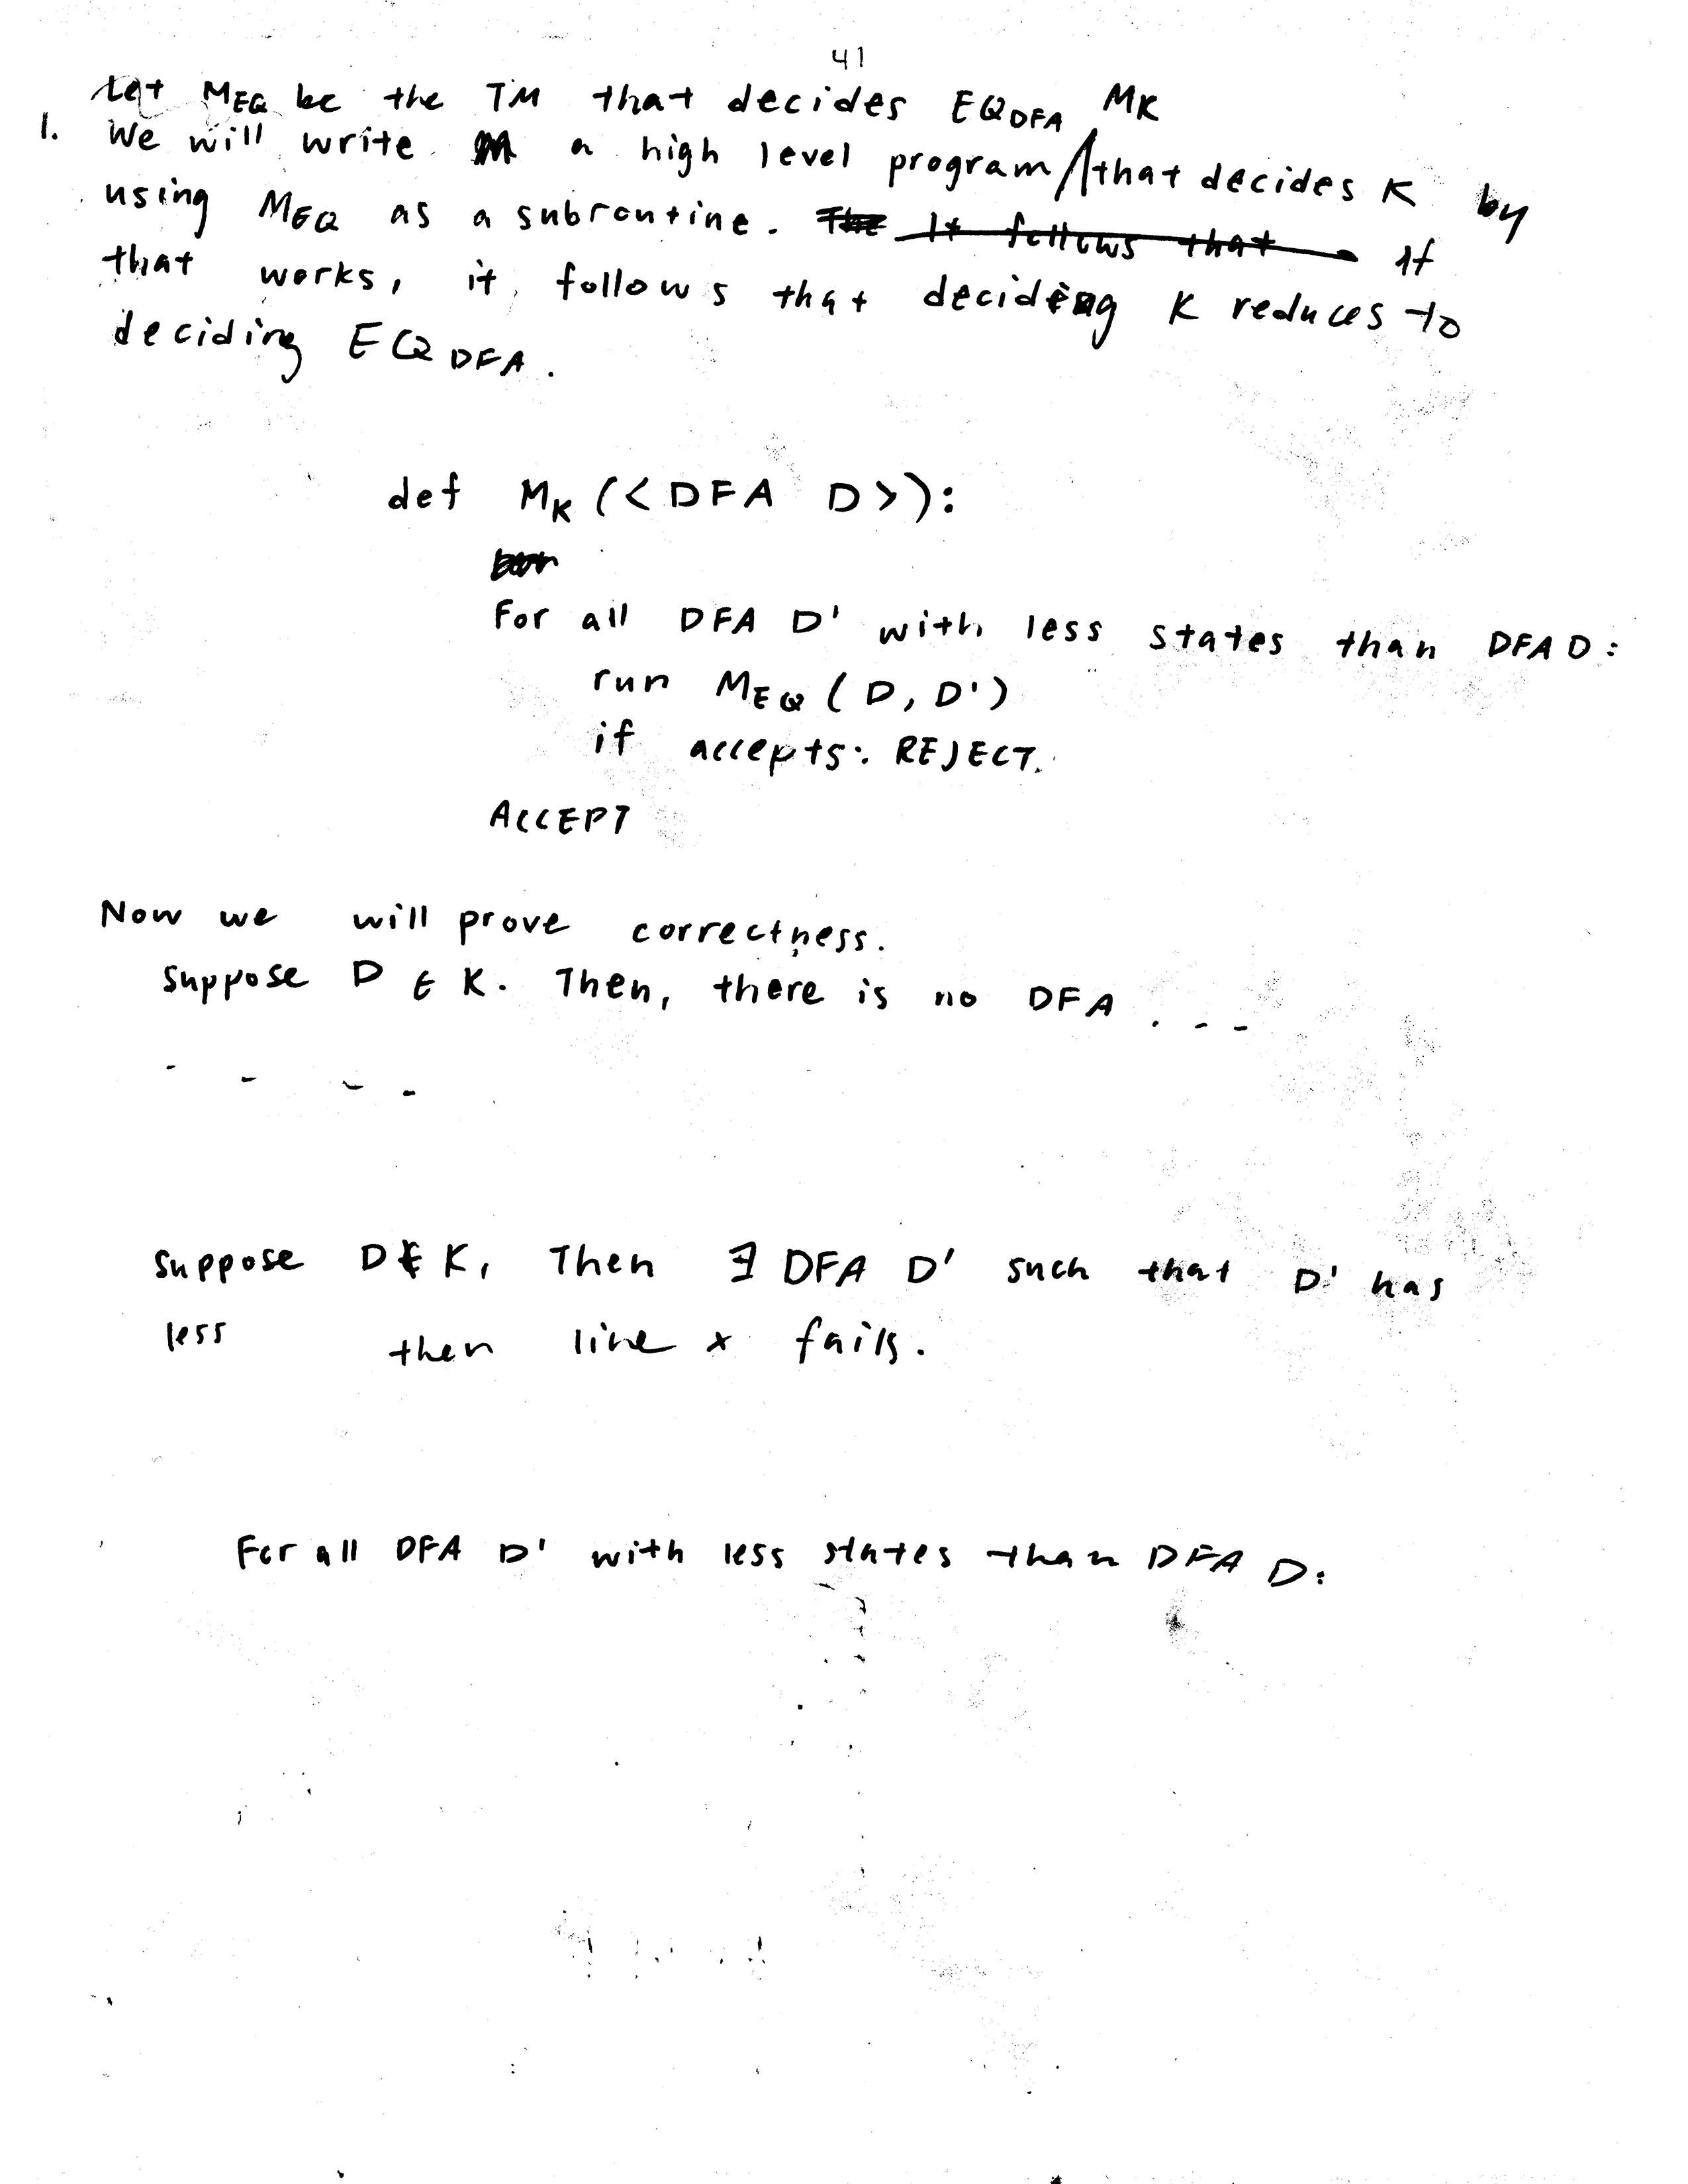 41
Let M_EQ be the TM that decides EQ_DFA M_K
1. We will write a high level program that decides K by
using M_EQ as a subroutine. The It follows that If
that works, it follows that deciding K reduces to
deciding EQ_DFA.
def M_K (<DFA D>):
For all DFA D' with less states than DFA D:
run M_EQ (D, D')
if accepts: REJECT.
ACCEPT
Now we will prove correctness.
Suppose D ∈ K. Then, there is no DFA . - -
- - - -
Suppose D ∉ K, Then ∃ DFA D' such that D' has
less then line x fails.
For all DFA D' with less states than DFA D: